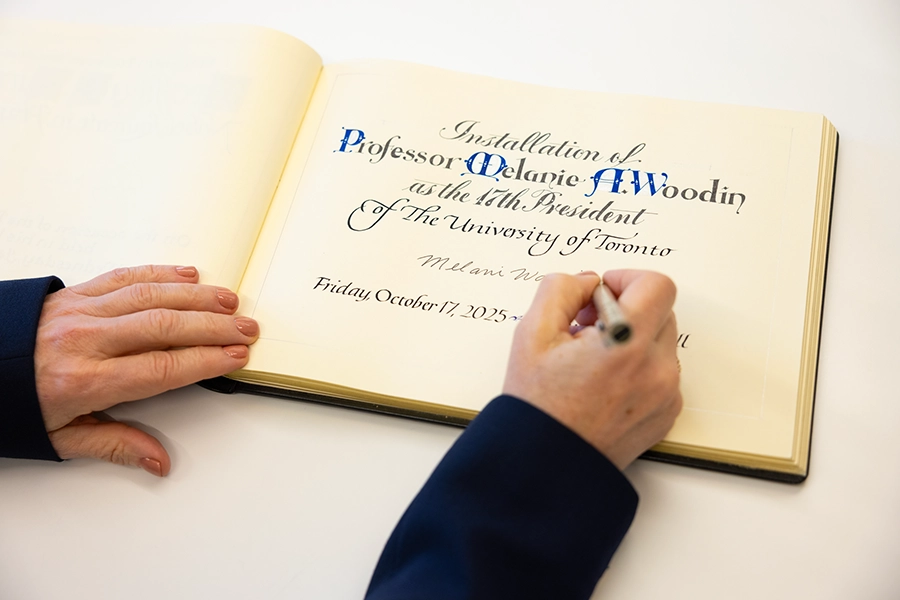 Installation of
Professor Melanie A. Woodin
as the 17th President
of The University of Toronto
Melani
Friday, October 17, 2025